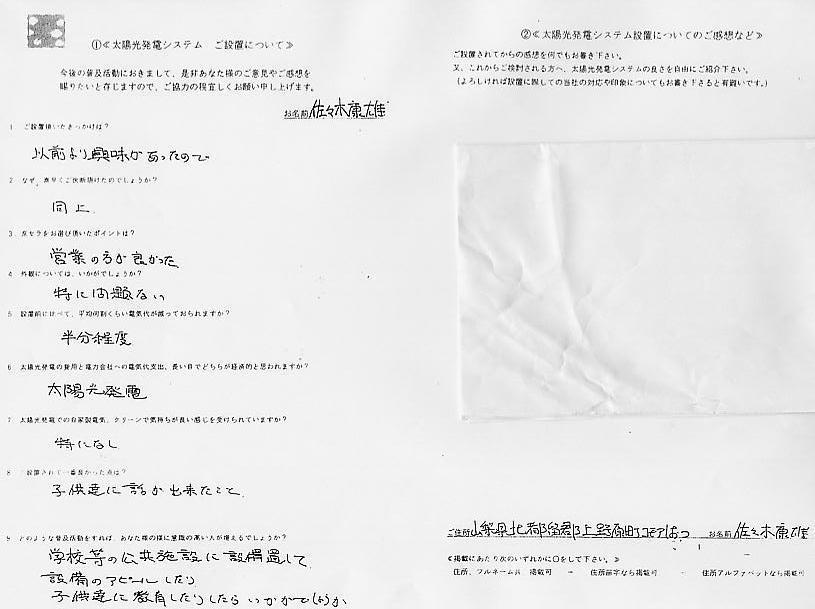 ①≪太陽光発電システム ご設置について≫
今後の普及活動におきまして、是非あなた様のご意見やご感想を
賜りたいと存じますので、ご協力の程宜しくお願い申し上げます。
お名前 佐々木康雄
1 ご設置頂いたきっかけは？
以前より興味があったので
2 なぜ、素早くご決断頂けたのでしょうか？
同上
3 京セラをお選び頂いたポイントは？
営業の方が良かった
4 外観については、いかがでしょうか？
特に問題ない
5 設置前に比べて、平均何割くらい電気代が減っておられますか？
半分程度
6 太陽光発電の費用と電力会社への電気代支出、長い目でどちらが経済的と思われますか？
太陽光発電
7 太陽光発電での自家製電気、クリーンで気持ちが良い感じを受けられていますか？
特になし
8 ご設置されて一番良かった点は？
子供達に話が出来たこと
9 どのような普及活動をすれば、あなた様の様に意識の高い人が増えるでしょうか？
学校等の公共施設に設備置して
設備のアピールしたり
子供達に教育したりしたらいかがでしょうか
②≪太陽光発電システム設置についてのご感想など≫
ご設置されてからの感想を何でもお書き下さい。
又、これからご検討される方へ、太陽光発電システムの良さを自由にご紹介下さい。
（よろしければ設置に際しての当社の対応や印象についてもお書き下さると有難いです。）
ご住所 山梨県北都留郡上野原町コモアしおつ お名前 佐々木康雄
≪掲載にあたり次のいずれかに○をして下さい。≫
住所、フルネーム共 掲載可 - 住所苗字なら掲載可 - 住所アルファベットなら掲載可